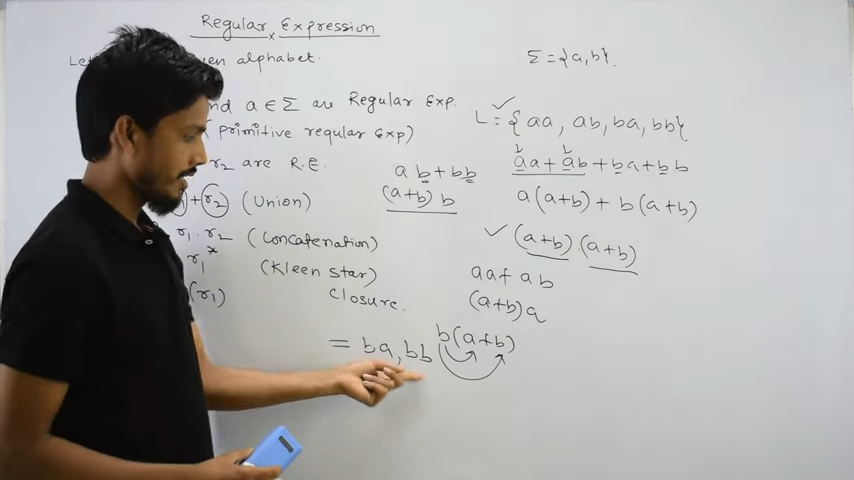 Regular Expression
Let ven alphabet.
nd a ∈ Σ are Regular Exp.
(primitive regular exp)
r2 are R.E.
r1)+(r2) (Union)
r1 . r2 (Concatenation)
r1* (Kleen star)
closure.
(r1)
ab+bb
(a+b) b
Σ={a,b}.
L={aa, ab, ba, bb}
b b
aa+ab+ba+bb
a(a+b) + b(a+b)
(a+b).(a+b)
aa+ ab
(a+b)a
b(a+b)
= ba, bb